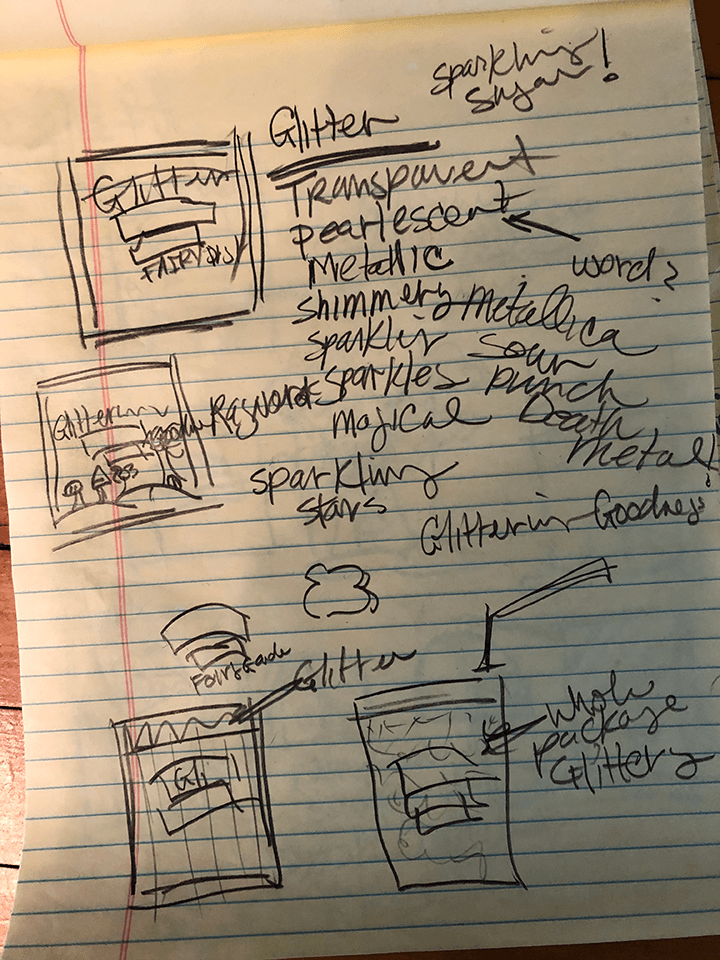 sparkling
sugar!
Glitter
Transparent
pearlescent
word?
Metallic
shimmery
Metallica
sparkler
sour
sparkles
punch
magical
Death
Metal!
sparkling
stars
Glitterin Goodness
Glitter
FAIRY
Glitterin
Glitter
Gli
whole
package
Glittery